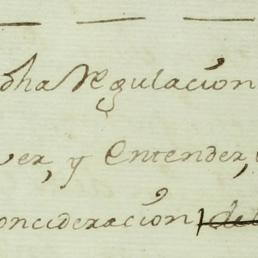 dha Regulación
ver, y Entender,
consideración del